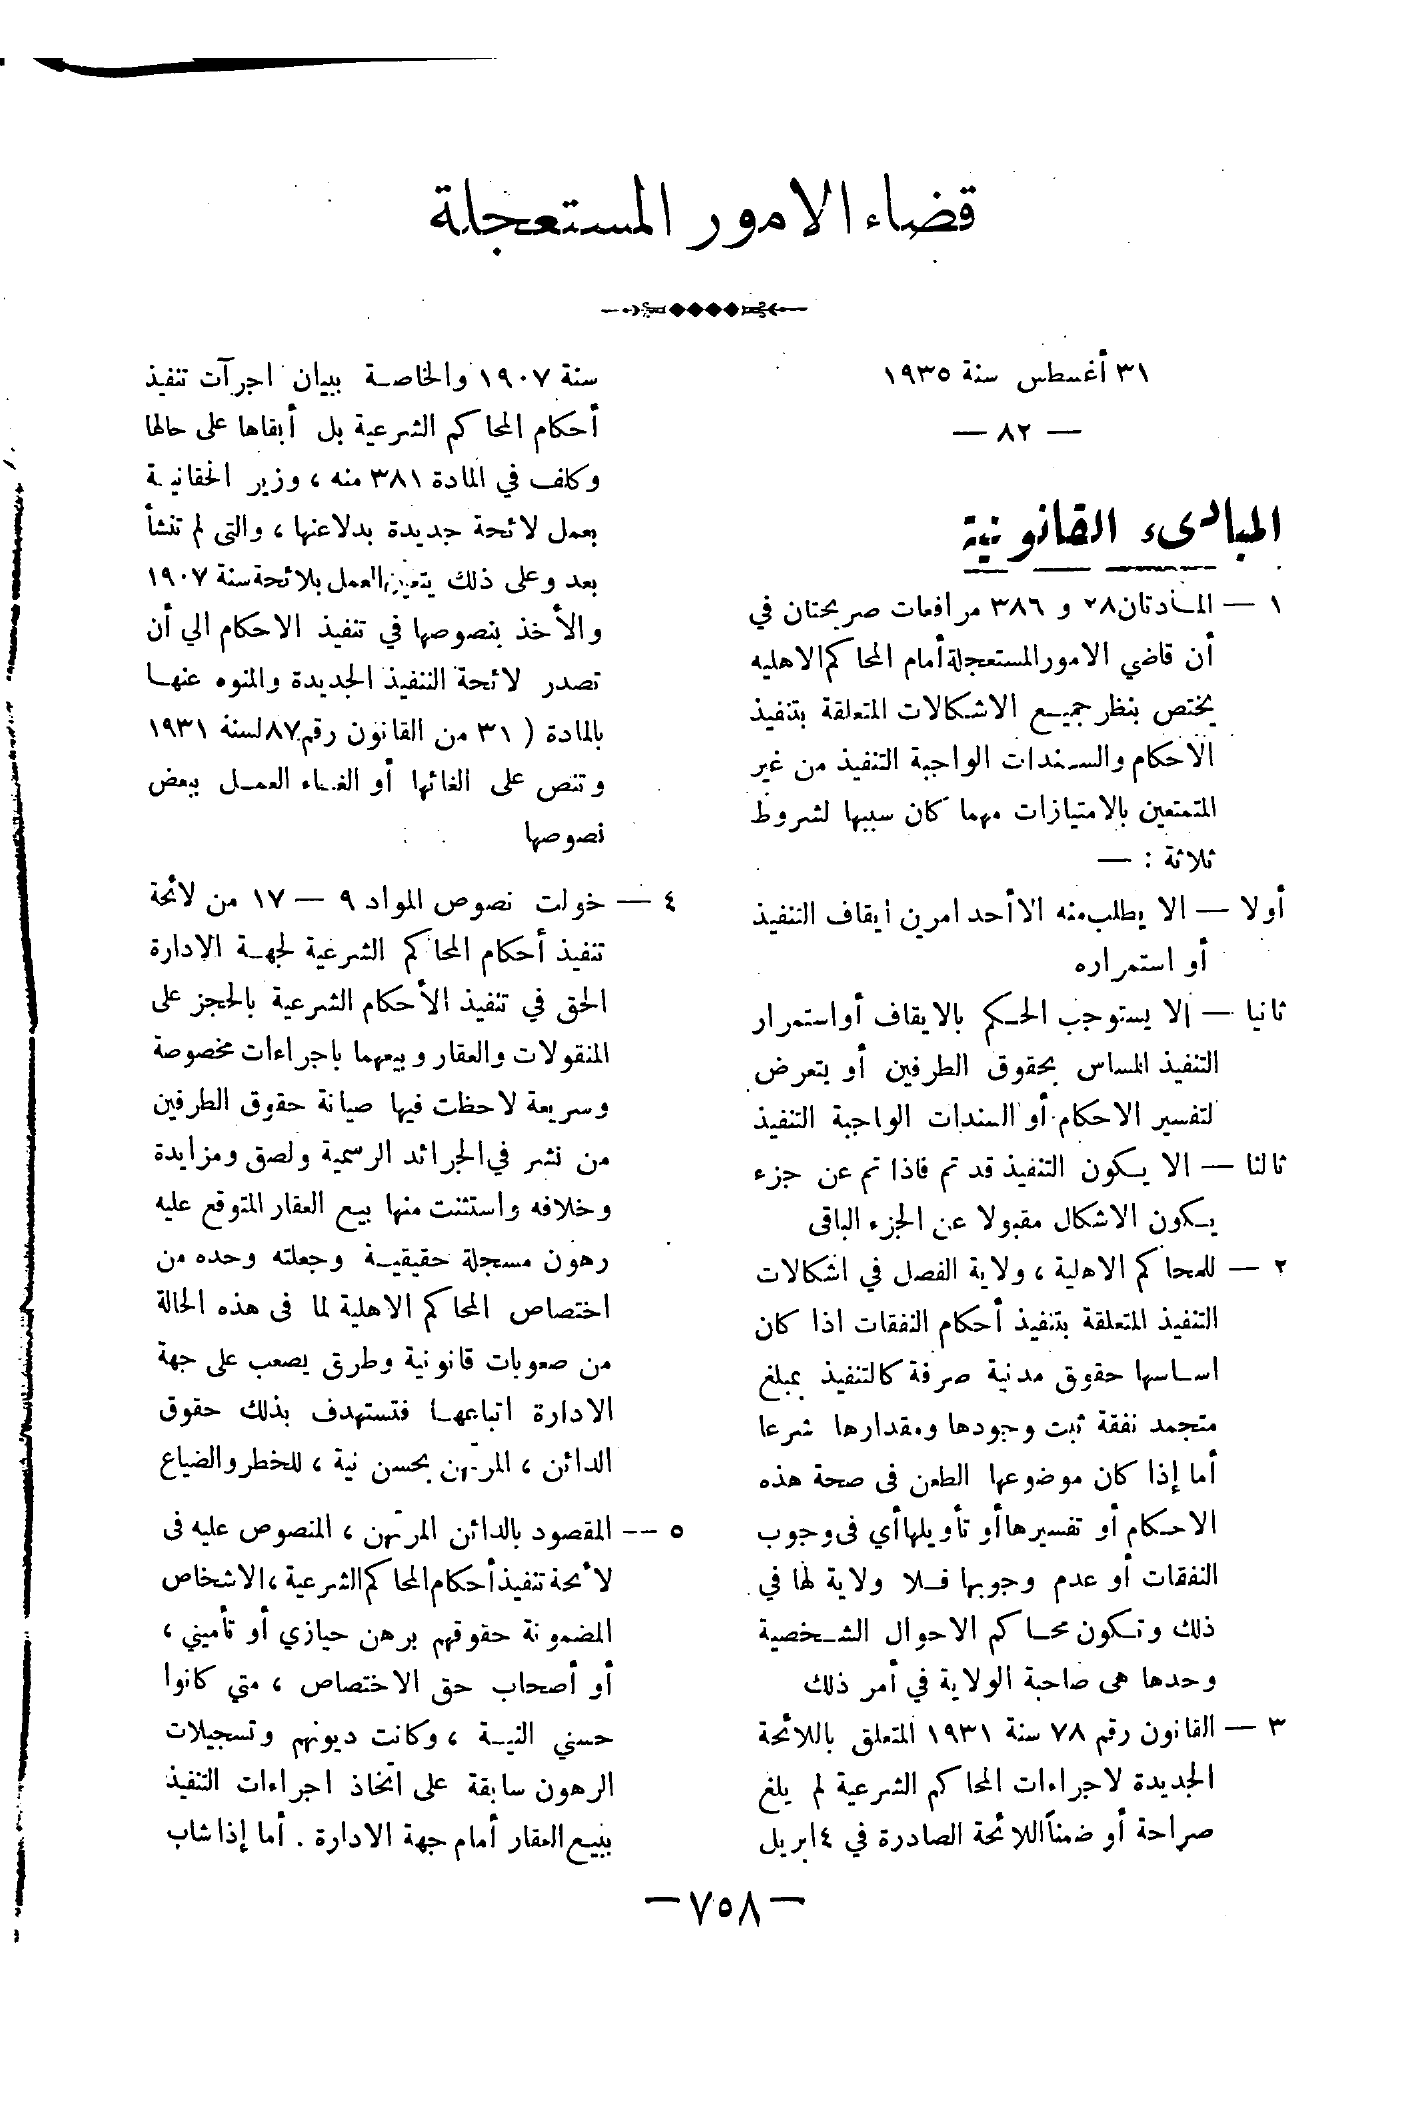 قضاء الامور المستعجلة
٣١ أغسطس سنة ١٩٣٥
— ٨٢ —
المبادىء القانونية
١ — المادتان ٢٨ و ٣٨٦ مرافعات صريحتان في
أن قاضي الامور المستعجلة أمام المحاكم الاهليه
يختص بنظر جميع الاشكالات المتعلقة بتنفيذ
الاحكام والسندات الواجبة التنفيذ من غير
المتمتعين بالامتيازات مهما كان سببها لشروط
ثلاثة : —
أولا — الا يطلب منه الا أحد امرين ايقاف التنفيذ
أو استمراره
ثانيا — الا يستوجب الحكم بالايقاف أو استمرار
التنفيذ المساس بحقوق الطرفين أو يتعرض
لتفسير الاحكام أو السندات الواجبة التنفيذ
ثالثا — الا يكون التنفيذ قد تم فاذا تم عن جزء
يكون الاشكال مقبولا عن الجزء الباقى
٢ — للمحاكم الاهلية ، ولاية الفصل في اشكالات
التنفيذ المتعلقة بتنفيذ أحكام النفقات اذا كان
اساسها حقوق مدنية صرفة كالتنفيذ بمبلغ
متجمد نفقة ثبت وجودها ومقدارها شرعا
أما إذا كان موضوعها الطعن فى صحة هذه
الاحكام أو تفسيرها أو تأويلها أي فى وجوب
النفقات أو عدم وجوبها فلا ولاية لها في
ذلك وتكون محاكم الاحوال الشخصية
وحدها هى صاحبة الولاية في أمر ذلك
٣ — القانون رقم ٧٨ سنة ١٩٣١ المتعلق باللائحة
الجديدة لاجراءات المحاكم الشرعية لم يلغ
صراحة أو ضمناً اللائحة الصادرة في ٤ ابريل
سنة ١٩٠٧ والخاصة ببيان اجرآت تنفيذ
أحكام المحاكم الشرعية بل أبقاها على حالها
وكلف في المادة ٣٨١ منه ، وزير الحقانية
بعمل لائحة جديدة بدلا عنها ، والتى لم تنشأ
بعد وعلى ذلك يتعين العمل بلائحة سنة ١٩٠٧
والأخذ بنصوصها في تنفيذ الاحكام الي أن
تصدر لائحة التنفيذ الجديدة والمنوه عنها
بالمادة ( ٣١ من القانون رقم ٨٧ لسنة ١٩٣١
وتنص على الغائها أو الغاء العمل ببعض
نصوصها
٤ — خولت نصوص المواد ٩ — ١٧ من لائحة
تنفيذ أحكام المحاكم الشرعية لجهة الادارة
الحق في تنفيذ الأحكام الشرعية بالحجز على
المنقولات والعقار وبيعهما باجراءات مخصوصة
وسريعة لاحظت فيها صيانة حقوق الطرفين
من نشر في الجرائد الرسمية ولصق ومزايدة
وخلافه واستثنت منها بيع العقار المتوقع عليه
رهون مسجلة حقيقية وجعلته وحده من
اختصاص المحاكم الاهلية لما فى هذه الحالة
من صعوبات قانونية وطرق يصعب على جهة
الادارة اتباعها فتستهدف بذلك حقوق
الدائن ، المرتهن بحسن نية ، للخطر والضياع
٥ — المقصود بالدائن المرتهن ، المنصوص عليه فى
لائحة تنفيذ أحكام المحاكم الشرعية ، الاشخاص
المضمونة حقوقهم برهن حيازي أو تأميني ،
أو أصحاب حق الاختصاص ، متي كانوا
حسني النية ، وكانت ديونهم وتسجيلات
الرهون سابقة على اتخاذ اجراءات التنفيذ
ببيع العقار أمام جهة الادارة . أما إذا شاب
— ٧٥٨ —